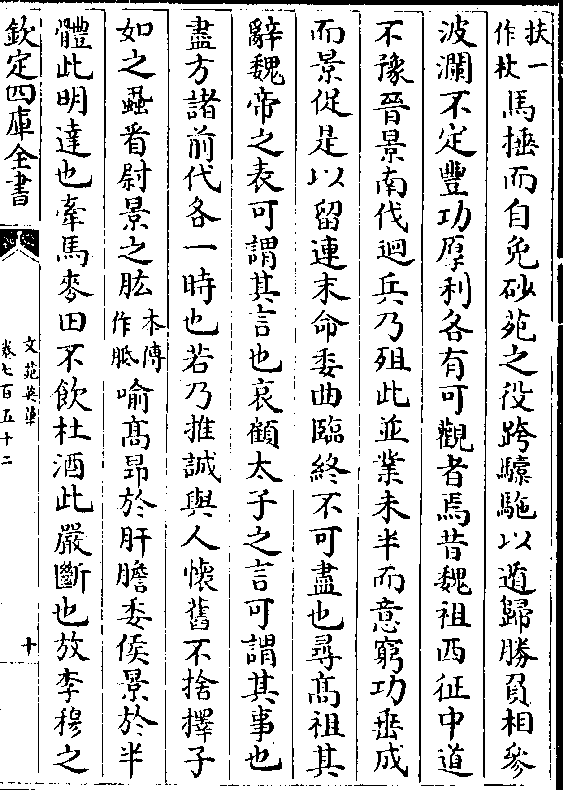 扶一作杖馬捶而自免砂苑之役跨驢駞以遁歸勝負相參
波瀾不定豐功厚利各有可觀者焉昔魏祖西征中道
不豫晉景南伐迴兵乃殂此並業未半而意窮功垂成
而景促是以留連末命委曲臨終不可盡也尋髙祖其
辭魏帝之表可謂其言也哀顧太子之言可謂其事也
盡方諸前代各一時也若乃推誠與人懷舊不捨擇子
如之蝨看尉景之肱本傳作胝喻髙昻於肝膽委侯景於半
體此明達也牽馬麥田不飲杜酒此嚴斷也放李穆之
欽定四庫全書
文苑英華
卷七百五十二
十